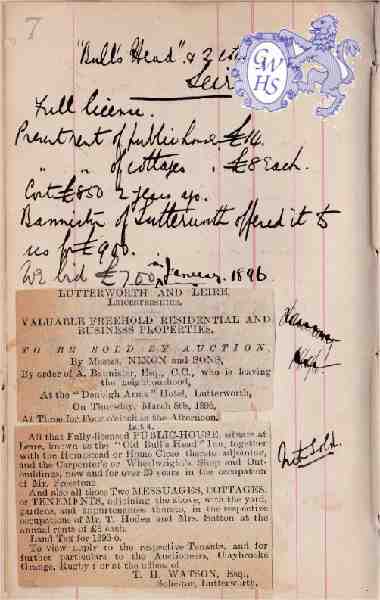 7
"Bull's Head" & 2
Leir
Full licence.
Present rent of public house £16.
" " of cottages . £8 Each.
Cost £850 2 years ago.
Bannister of Lutterworth offered it to
us for £900.
We bid £700 in January. 1896
GWHS
LUTTERWORTH AND LEIRE,
Leicestershire.
VALUABLE FREEHOLD RESIDENTIAL AND
BUSINESS PROPERTIES.
TO BE SOLD BY AUCTION,
By Messrs. NIXON and SONS,
By order of A. Bannister, Esq., C.C., who is leaving
the neighbourhood,
At the "Denbigh Arms" Hotel, Lutterworth,
On Thursday, March 5th, 1896,
At Three for Four o'clock in the Afternoon.
Lot 4.
All that Fully-licensed PUBLIC-HOUSE, situate at
Leire, known as the "Old Bull's Head" Inn, together
with the Homestead or Home Close thereto adjoining,
and the Carpenter's or Wheelwright's Shop and Out-
buildings, now and for over 20 years in the occupation
of Mr. Freestone.
And also all those Two MESSUAGES, COTTAGES,
or TENEMENTS, adjoining the above, with the yard,
gardens, and appurtenances thereto, in the respective
occupations of Mr. T. Hodes and Mrs. Sutton at the
annual rents of £8 each.
Land Tax for 1895-6.
To view apply to the respective Tenants, and for
further particulars to the Auctioneers, Claybrooke
Grange, Rugby; or at the offices of
T. H. WATSON, Esq.,
Solicitor, Lutterworth.
Not Sold.